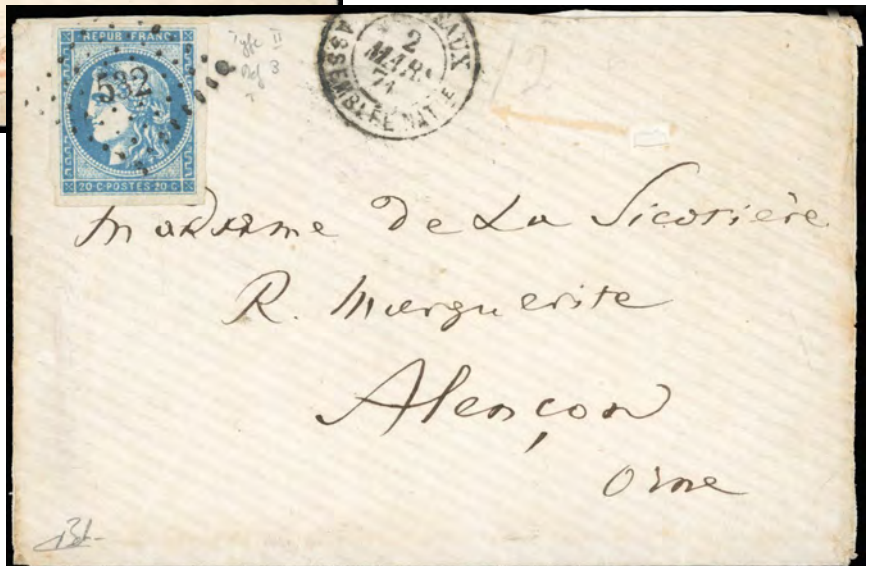 REPUB FRANC
532
20·C·POSTES·20·C
Type II
Rep 3
EAUX
2
MARS
71
ASSEMBLEE NATLE
12
Madame De La Sicorière
R. Marguerite
Alençon
Orne